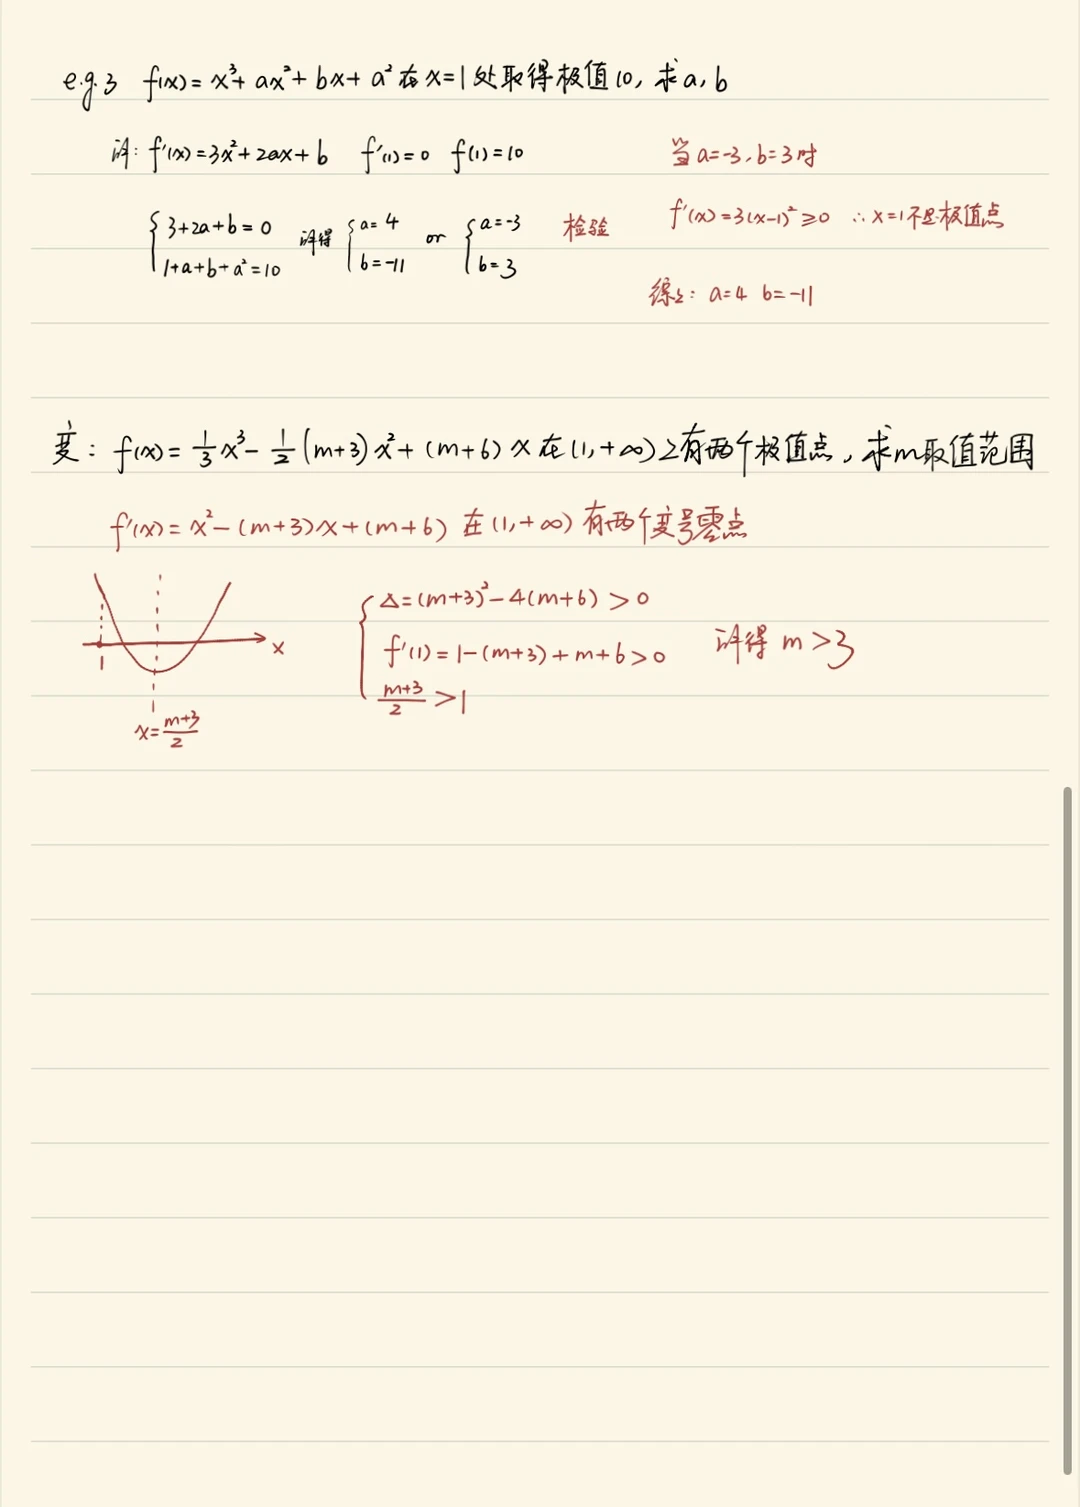 e.g.3 f(x)=x³+ax²+bx+a²在x=1处取得极值10,求a,b
解: f'(x)=3x²+2ax+b f'(1)=0 f(1)=10
当a=-3,b=3时
{3+2a+b=0 1+a+b+a²=10 解得 {a=4 b=-11 or {a=-3 b=3 检验
f'(x)=3(x-1)²≥0 ∴x=1不是极值点
综上: a=4 b=-11
变: f(x)=1/3x³-1/2(m+3)x²+(m+6)x在(1,+∞)上有两个极值点,求m取值范围
f'(x)=x²-(m+3)x+(m+6) 在(1,+∞)有两个变号零点
1 x
x=m+3/2
{Δ=(m+3)²-4(m+6)>0
f'(1)=1-(m+3)+m+6>0 解得 m>3
m+3/2>1